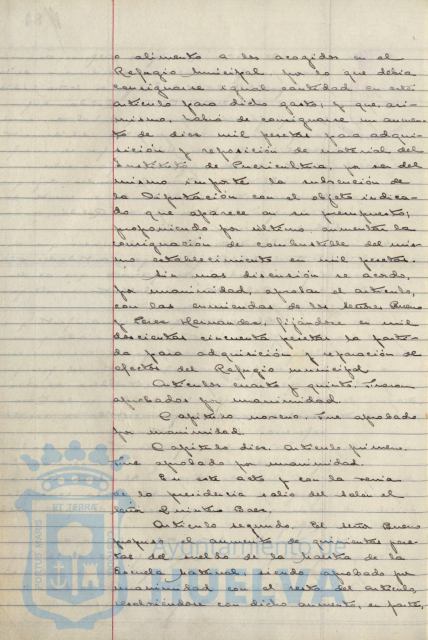 o alimento a los acogidos en el
Refugio Municipal, por lo que debia
consignarse igual cantidad en este
artículo para dicho gasto; y que, asi-
mismo, habia de consignarse un aumen-
to de diez mil pesetas para adqui-
sición y reposición de material del
Instituto de Puericultura, por ser del
mismo importe la subvención de
la Diputación con el objeto indica-
do que aparece en su presupuesto;
proponiendo por ultimo, aumentar la
consignación de combustible del mis-
mo establecimiento en mil pesetas.
Sin mas discusión se acordo,
por unanimidad, aprobar el artículo,
con las enmiendas de los señores Bueno
y Perez Hernandez, fijándose en mil
doscientas cincuenta pesetas la parti-
da para adquisición y reparación de
efectos del Refugio municipal
Artículos cuarto y quinto. Fueron
aprobados por unanimidad.
Capítulo noveno. Fue aprobado
por unanimidad.
Capítulo diez. Artículo primero.
Fue aprobado por unanimidad.
En este acto y con la venia
de la presidencia salio del salón el
señor Quintero Baez.
Artículo segundo. El señor Bueno
propuso el aumento de quinientas pese-
tas del sueldo de la Maestra de la
Escuela maternal, siendo aprobado por
unanimidad con el resto del artículo,
resolviéndose con dicho aumento, en parte,
PORTUS MARIS
ET TERRAE
CUSTODIA
Ayuntamiento de
HUELVA